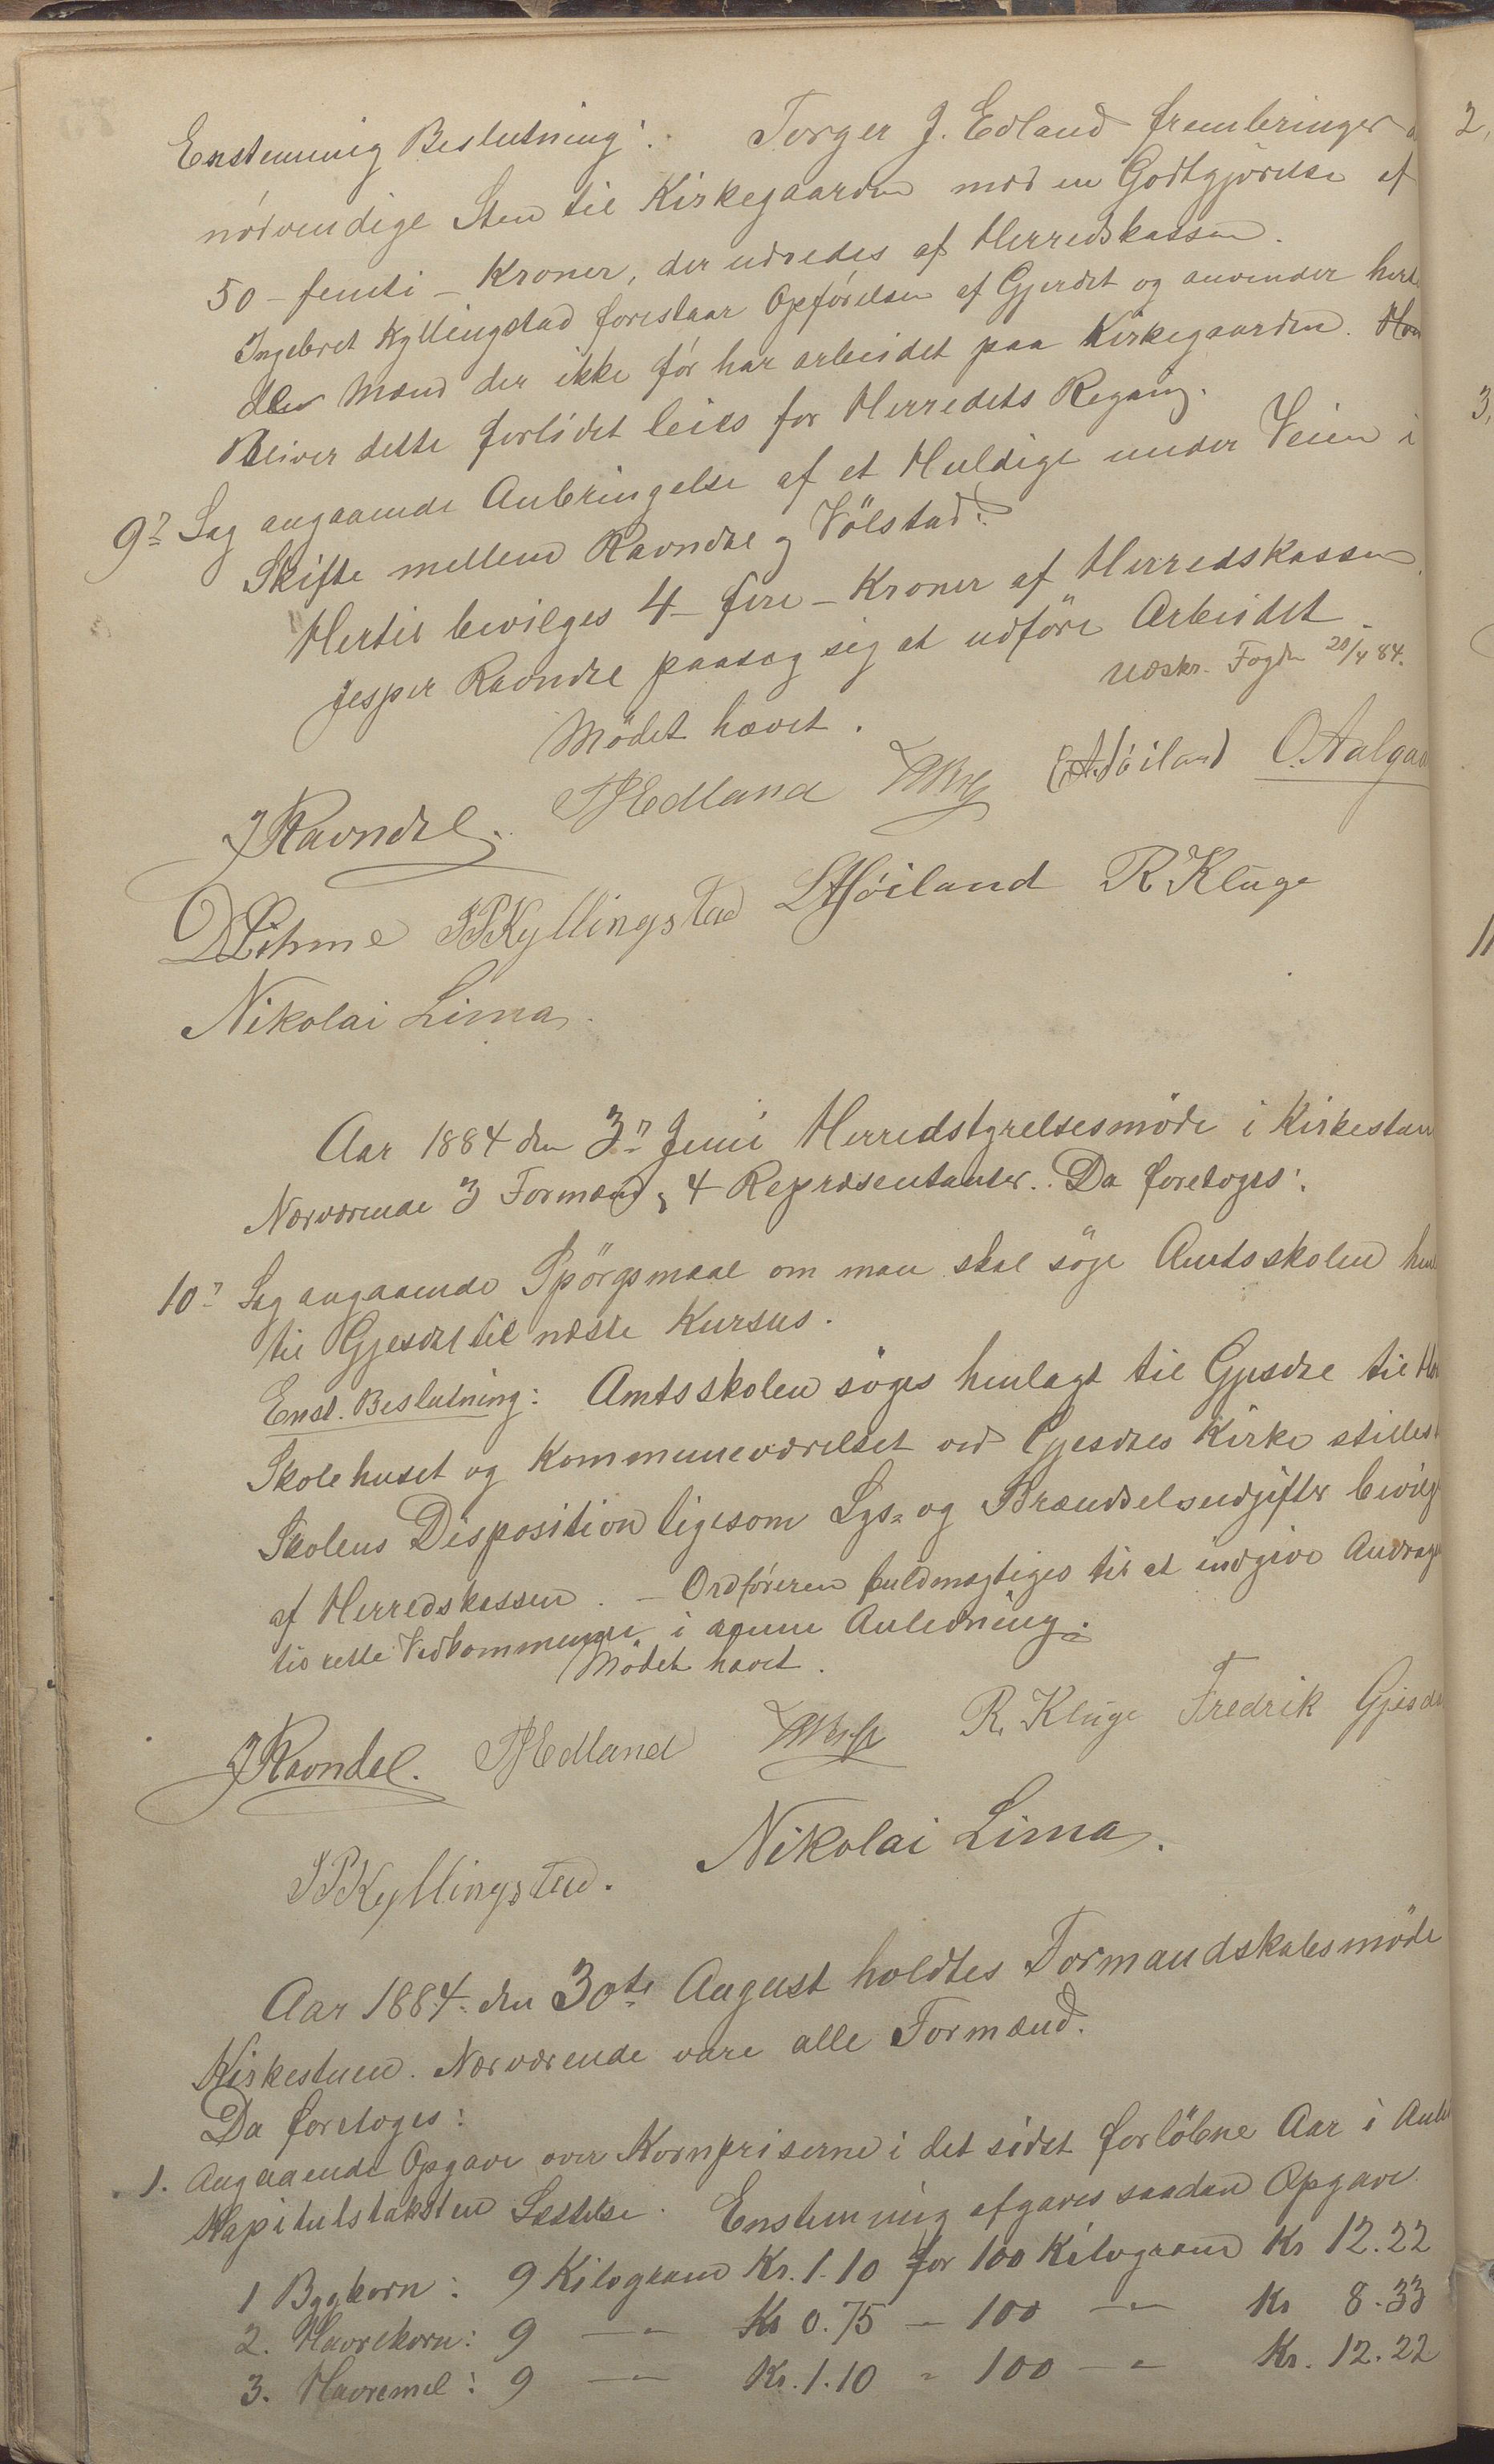 Enstemmig Beslutning: Torger J. Edland frembringer
nødvendige Sten til Kirkegaarden mod en Godtgjørelse af
50 – femti – Kroner, der udredes af Herredskassen.
Ingebret Kyllingstad forestaar Opførelsen af Gjerdet og anvender
Mænd der ikke før har arbeidet paa Kirkegaarden.
Bliver dette forlidet leies for Herredets Regning.
9? Sag angaaende Anbringelse af et Huldige under Veien i
Skifte mellem Ravndal og Vølstad:
Hertil bevilges 4 – fire – Kroner af Herredskassen.
Jesper Ravndal paatog sig at udføre Arbeidet.
Udskr. Fogden 20/4 84.
Mødet hævet.
J Ravndal. TJEdland EAHöiland O. Aalgaa
D Lihme IPKyllingstad LAHöiland R Kluge
Nikolai Lima.
Aar 1884 den 3? Juni Herredstyrelsesmøde i Kirkestuen
Nærværende 3 Formænd, 4 Repræsentanter. Da foretoges:
10? Sag angaaende Spørgsmaal om man skal søge Amtsskolen
til Gjesdal til næste Kursus.
Enst. Beslutning: Amtsskolen søges henlagt til Gjesdal til
Skolehuset og Kommuneværelset ved Gjesdals Kirke stilles
Skolens Disposition ligesom Lys- og Brændselsudgifter bevilg
af Herredskassen. – Ordføreren fuldmægtiges til at indgive Andrag
til rette Vedkommende i denne Anledning.
Mødet hævet.
J Ravndal. TJEdland R. Kluge Fredrik Gjesda
IPKyllingstad. Nikolai Lima.
Aar 1884. den 30te August holdtes Formandskabsmøde
Kirkestuen. Nærværende vare alle Formænd.
Da foretoges:
1. Angaaende Opgave over Kornpriserne i det sidst forløbne Aar i Anl
Kapitulstakstens Sættelse. Enstemmig afgaves saadan Opgave
1 Bygkorn: 9 Kilogram Kr. 1.10 for 100 Kilogram Kr 12.22
2. Havrekorn: 9 —"— Kr 0.75 – 100 —"— Kr 8.33
3. Havremel: 9 —"— Kr. 1.10 " 100 —"— Kr. 12.22